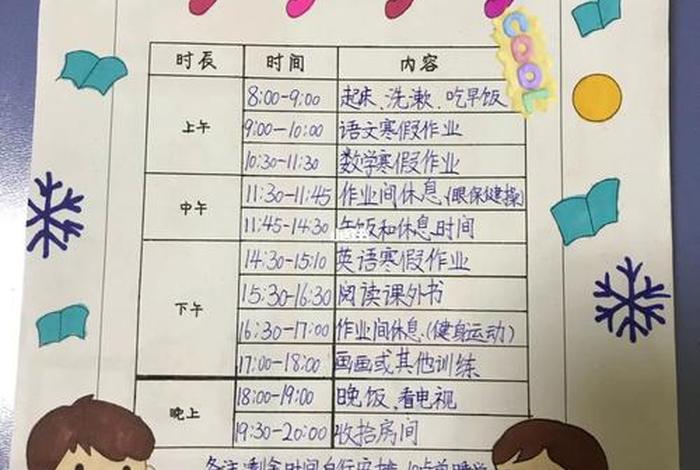 COOL
时长 时间 内容
上午 8:00-9:00 起床、洗漱、吃早饭
9:00-10:00 语文寒假作业
10:30-11:30 数学寒假作业
中午 11:30-11:45 作业间休息(眼保健操)
11:45-14:30 午饭和休息时间
下午 14:30-15:10 英语寒假作业
15:30-16:30 阅读课外书
16:30-17:00 作业间休息(健身运动)
17:00-18:00 画画或其他训练
晚上 18:00-19:00 晚饭、看电视
19:30-20:00 收拾房间
备注:剩余时间自行安排